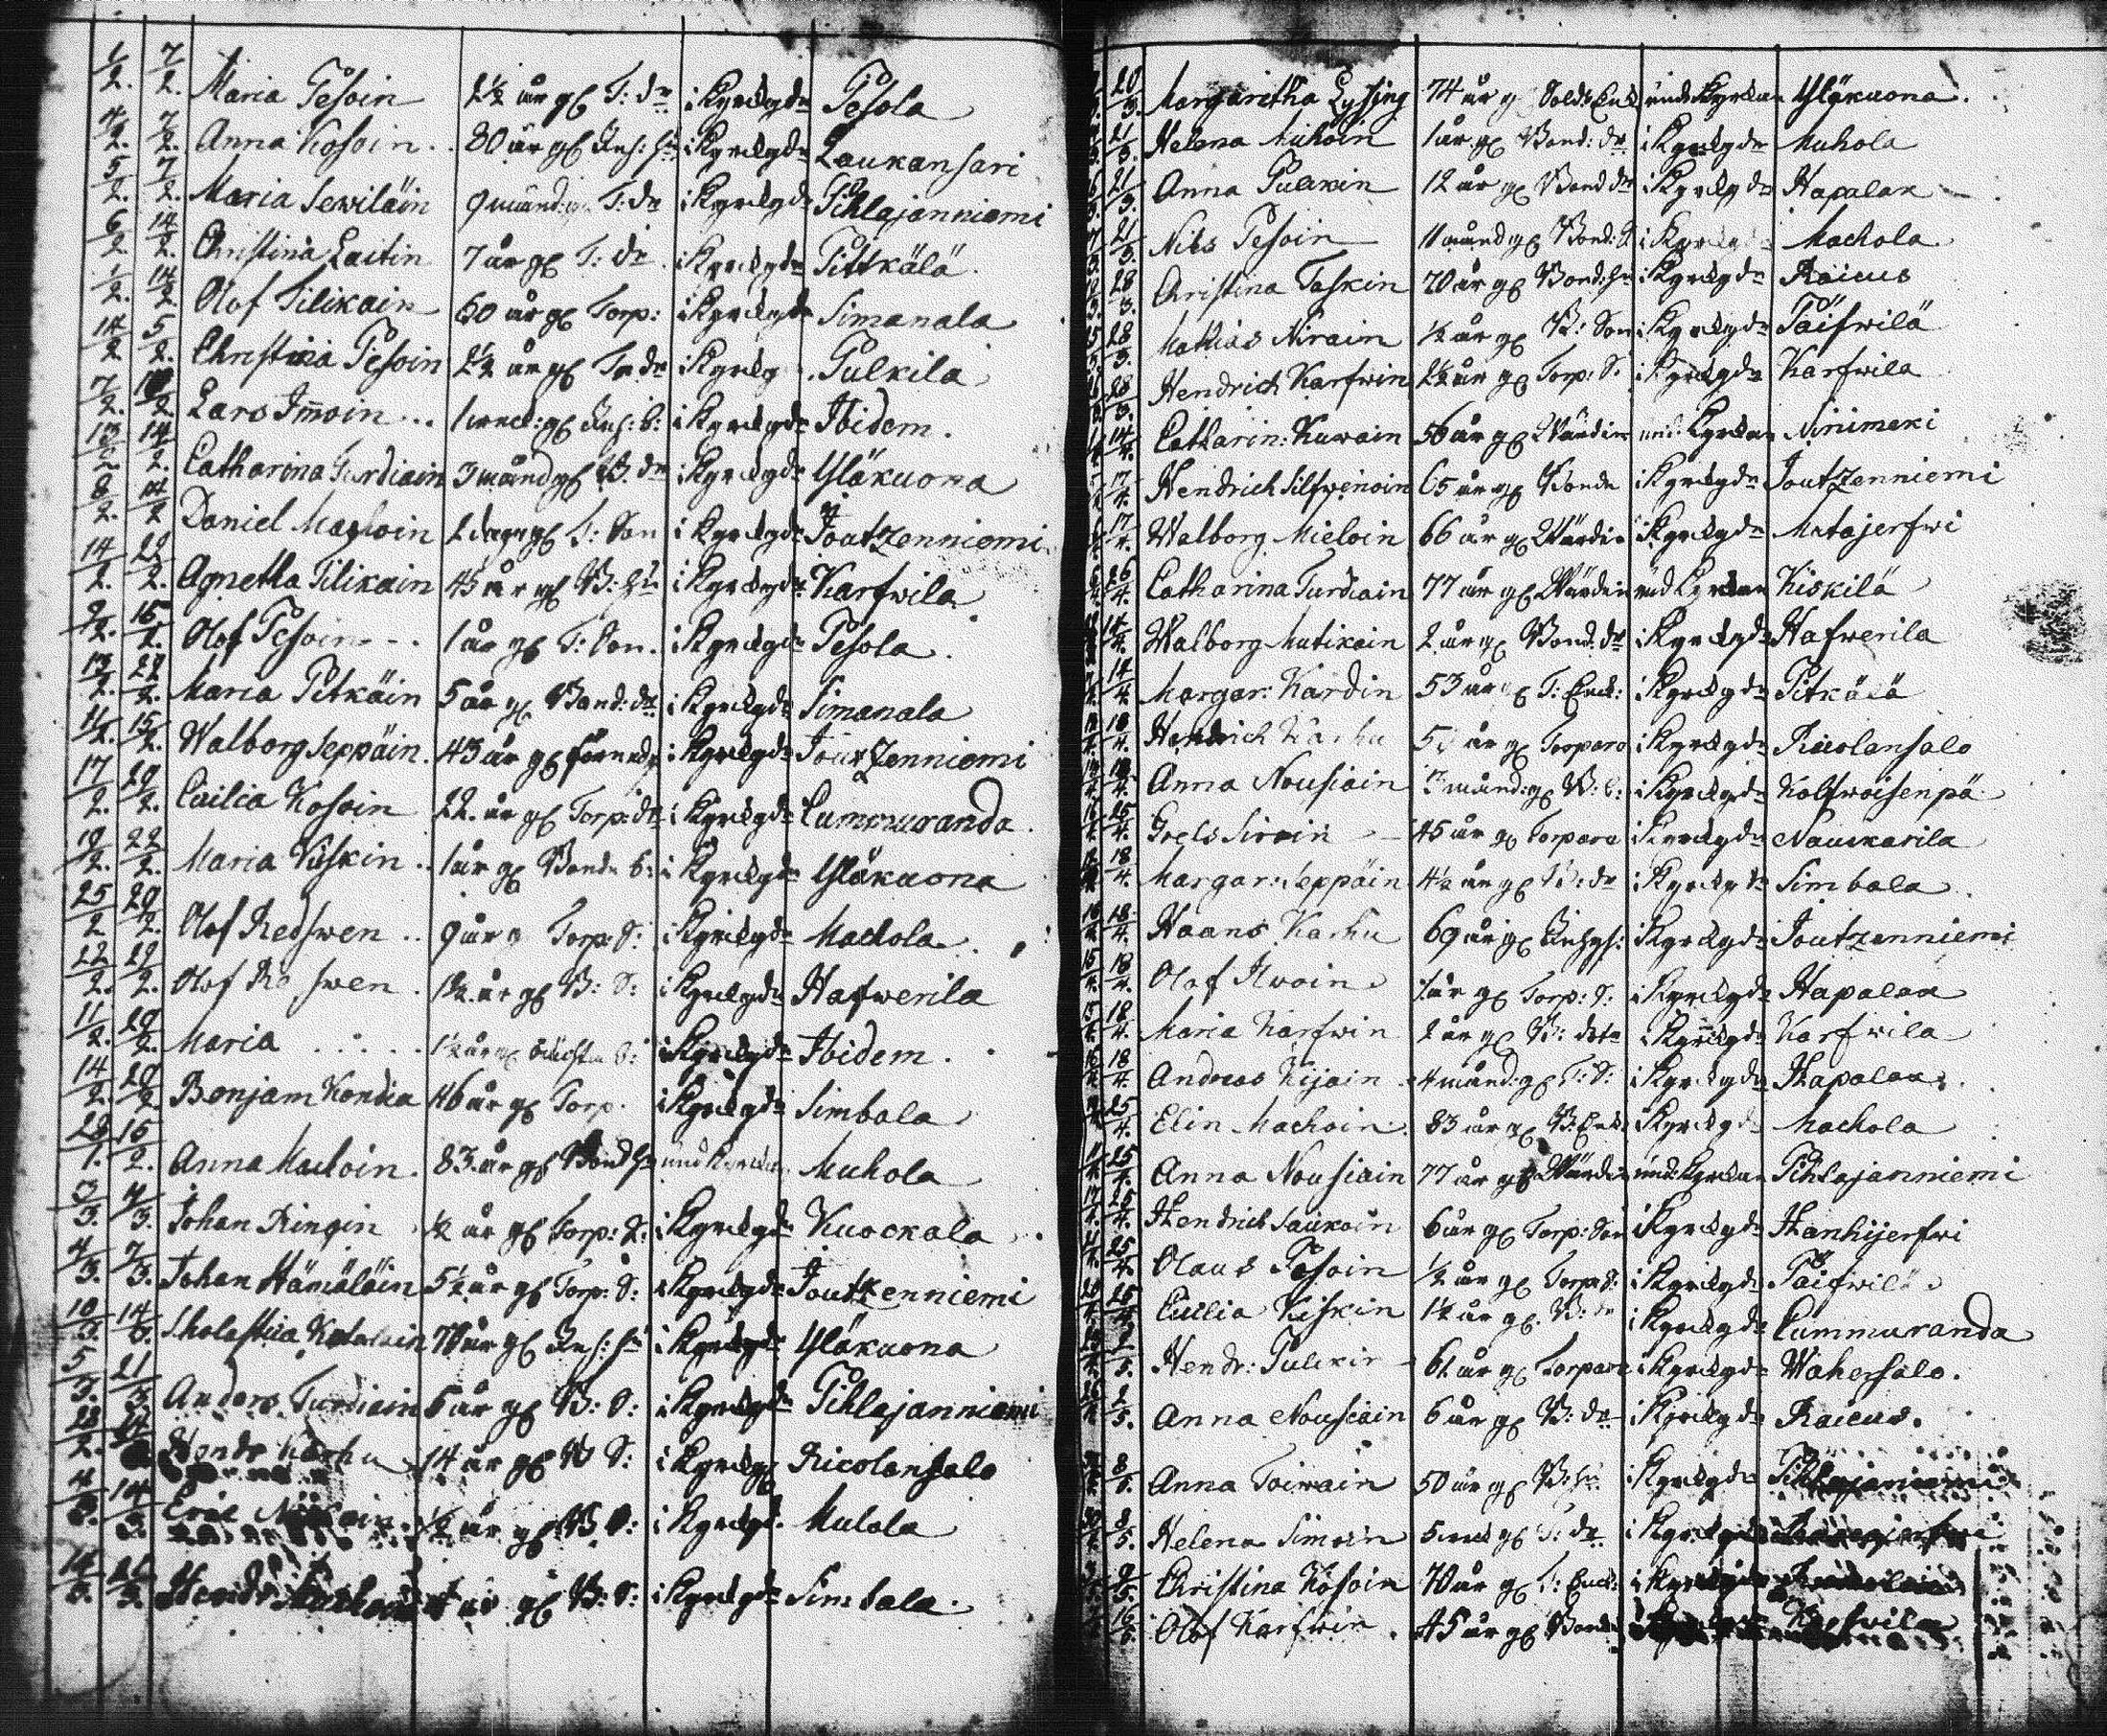 1/2. 7/2. Maria Pesoin 2½ år gl T: dr i Kyrckgdn Pesola
4/2. 7/2. Anna Kosoin 80 år gl Inh: hu i Kyrckgdn Laukansari
5/2. 7/2. Maria Sewiläin 9 månd: gl T: dr i Kyrckgdn Pihlajanniemi
6/2. 14/2. Christina Laitin 7 år gl T: dr i Kyrckgdn Pittkälä
1/2. 14/2. Olof Tilikain 60 år gl Torp: i Kyrckgdn Simanala
14/2 5/2. Christina Pesoin 2½ år gl T dr i Kyrckg Pulkila
7/2. Lars Im̅oin 1 weck: gl Inh: b: i Kyrckgdn Ibidem.
13/2 14/2. Catharina Turdiain 3 månd gl B. dr i Kyrckgdn Yläkuona
8/2. 14/2 Daniel Machoin 2 dagar gl T: Son i Kyrckgdn Joutzenniemi
14/2. 22/2. Agnetha Tilikain 45 år gl B: hu i Kyrckgdn Karfwila
9/2. 15/2. Olof Pesoin 1 år gl T: Son. i Kyrckgdn Pesola
13/2. 22/2. Maria Pitkäin 5 år gl Bond: dr i Kyrckgdn Simanala
11/2. 15/2. Walborg Seppäin. 43 år gl i Kyrckgdn Joutzenniemi
17/2. 20/2. Cecilia Kosoin 22. år gl Torp: dr i Kyrckgdn Cummuranda
19/2. 22/2. Maria Kiskin 1 år gl Bonde b: i Kyrckgdn Yläkuona
25/2 29/2. Olof Redswen 9 år g Torp: S: i Kyrckgdn Machola
22/2. 29/2. Olof swen 1½ år gl B: S: i Kyrckgdn Hafwerila
11/2. 29/2. Maria 1½ år gl i Kyrckgdn Ibidem.
14/2. 29/2 Benjam Kondia 46 år gl Torp. i Kyrckgdn Simbala
28/1. 15/2. Anna Machoin. 83. år gl Bond hu und Kyrckan Muhola
3/3. 4/3. Johan Ringin ½ år gl Torp: S: i Kyrckgdn Kuockala
4/3. 7/3. Johan Hämäläin 5½ år gl Torp: S: i Kyrckgdn Joutzenniemi
10/3 14/3. Sholastica 70 år gl Inh: hu i Kyrckgdn Yläkuona
5/3. 21/3 Anders Turdiain 6 år gl B: S: i Kyrckgdn Pihlajanniemi
28/2. Hendr Karhu 14 år gl B S: i Kyrckg Ricolansalo
4/3. 14/3. Eric ½ år gl B S: i Kyrckgd. Mulola
14/3. 21/3 Hendr år gl B: S: i Kyrckgdn Simbala
20/3. Margaritha Lyssing 74 år gl Sold: Enk under Kyrckan Yläkuona.
21/3. Helena Muhoin 1 år gl Bond: dr i Kyrckgdn Muhola
21/3. Anna Pulckin 12 år gl Bond dr i Kyrckgdn Hapalax
21/3. Nils Pesoin 11 månd gl Bond: S i Kyrckgd Machola
28/3. Christina Taskin 70 år gl Bond: hu i Kyrckgdn Raicus
28/3. Mathias Nirain ½ år gl B: Son i Kyrckgdn Päifwilä
28/3. Hendrich Karfwin 2½ år gl Torp: S. i Kyrckgdn Karfwila
14/4. Catharin: Kuwain 56 år gl Wärdin und: Kyrckan Ninimeki
17/4. Hendrich Silfwenoin 65 år gl Bonde i Kyrckgdn Joutzenniemi
17/4. Walborg Mieloin 66 år gl Wärdin i Kyrckgdn Matajerfwi
26/4. Catharina Turdiain 77 år gl Wärdin und Kyrckan Kiskilä
14/4. Walborg Mutikain 2 år gl Bond: dr i Kyrckgdn Hafwerila
14/4 Margar: Kardin 53 år gl T: Enck: i Kyrckgdn Pitkälä
18/4. Hendrich Karhu år gl Torpare i Kyrckgdn Ricolansalo
18/4. Anna Nousiain månd: gl B: b: i Kyrckgdn Kolfwoisenpä
25/4. Grels Siroin 45 år gl Torpare i Kyrckgdn Nauckarila
18/4. Margar: Seppäin 4½ år gl B: dr i Kyrckgdn Simbala
18/4. Haans Karhu 69 år gl Inhys: i Kyrckgdn Joutzenniemi
18/4. Olof Ilwoin 1 år gl Torp: S: i Kyrckgdn Hapalax
18/4. Maria Karfwin 2 år gl B: dotr i Kyrckgdn Karfwila
18/4. Andreas Kijain 4 månd: gl T: S: i Kyrckgdn Hapalax
25/4. Elin Machoin 83 år gl B: Enk i Kyrckgd Machola
25/4. Anna Nousiain 77 år gl Wärdin und: Kyrckan Pihlajanniemi
25/4. Hendrich Saukoin 6 år gl Torp: Son i Kyrckgdn Hanhijerfwi
25/4. Olaus Pesoin ½ år gl Torp: S: i Kyrckgdn Päifwilä
25/4 Cecilia Kiskin 1½ år gl B: dr i Kyrckgdn Cummuranda
2/5. Hendr: Pulckin 61 år gl Torpare i Kyrckgdn Wahersalo.
2/5. Anna Nousiain 6 år gl B: dr i Kyrckgdn Raicus.
8/5. Anna Toiwain 50 år gl B: hu i Kyrckgdn Pihlajaniemi
8/5. Helena Simoin 5 weck gl T: dr i Kyrckgdn
9/5. Christina Kosoin 70 år gl T: Enck: i Kyrckgdn
16/5. Olof Karfwin 45 år gl Bonde Karfwila